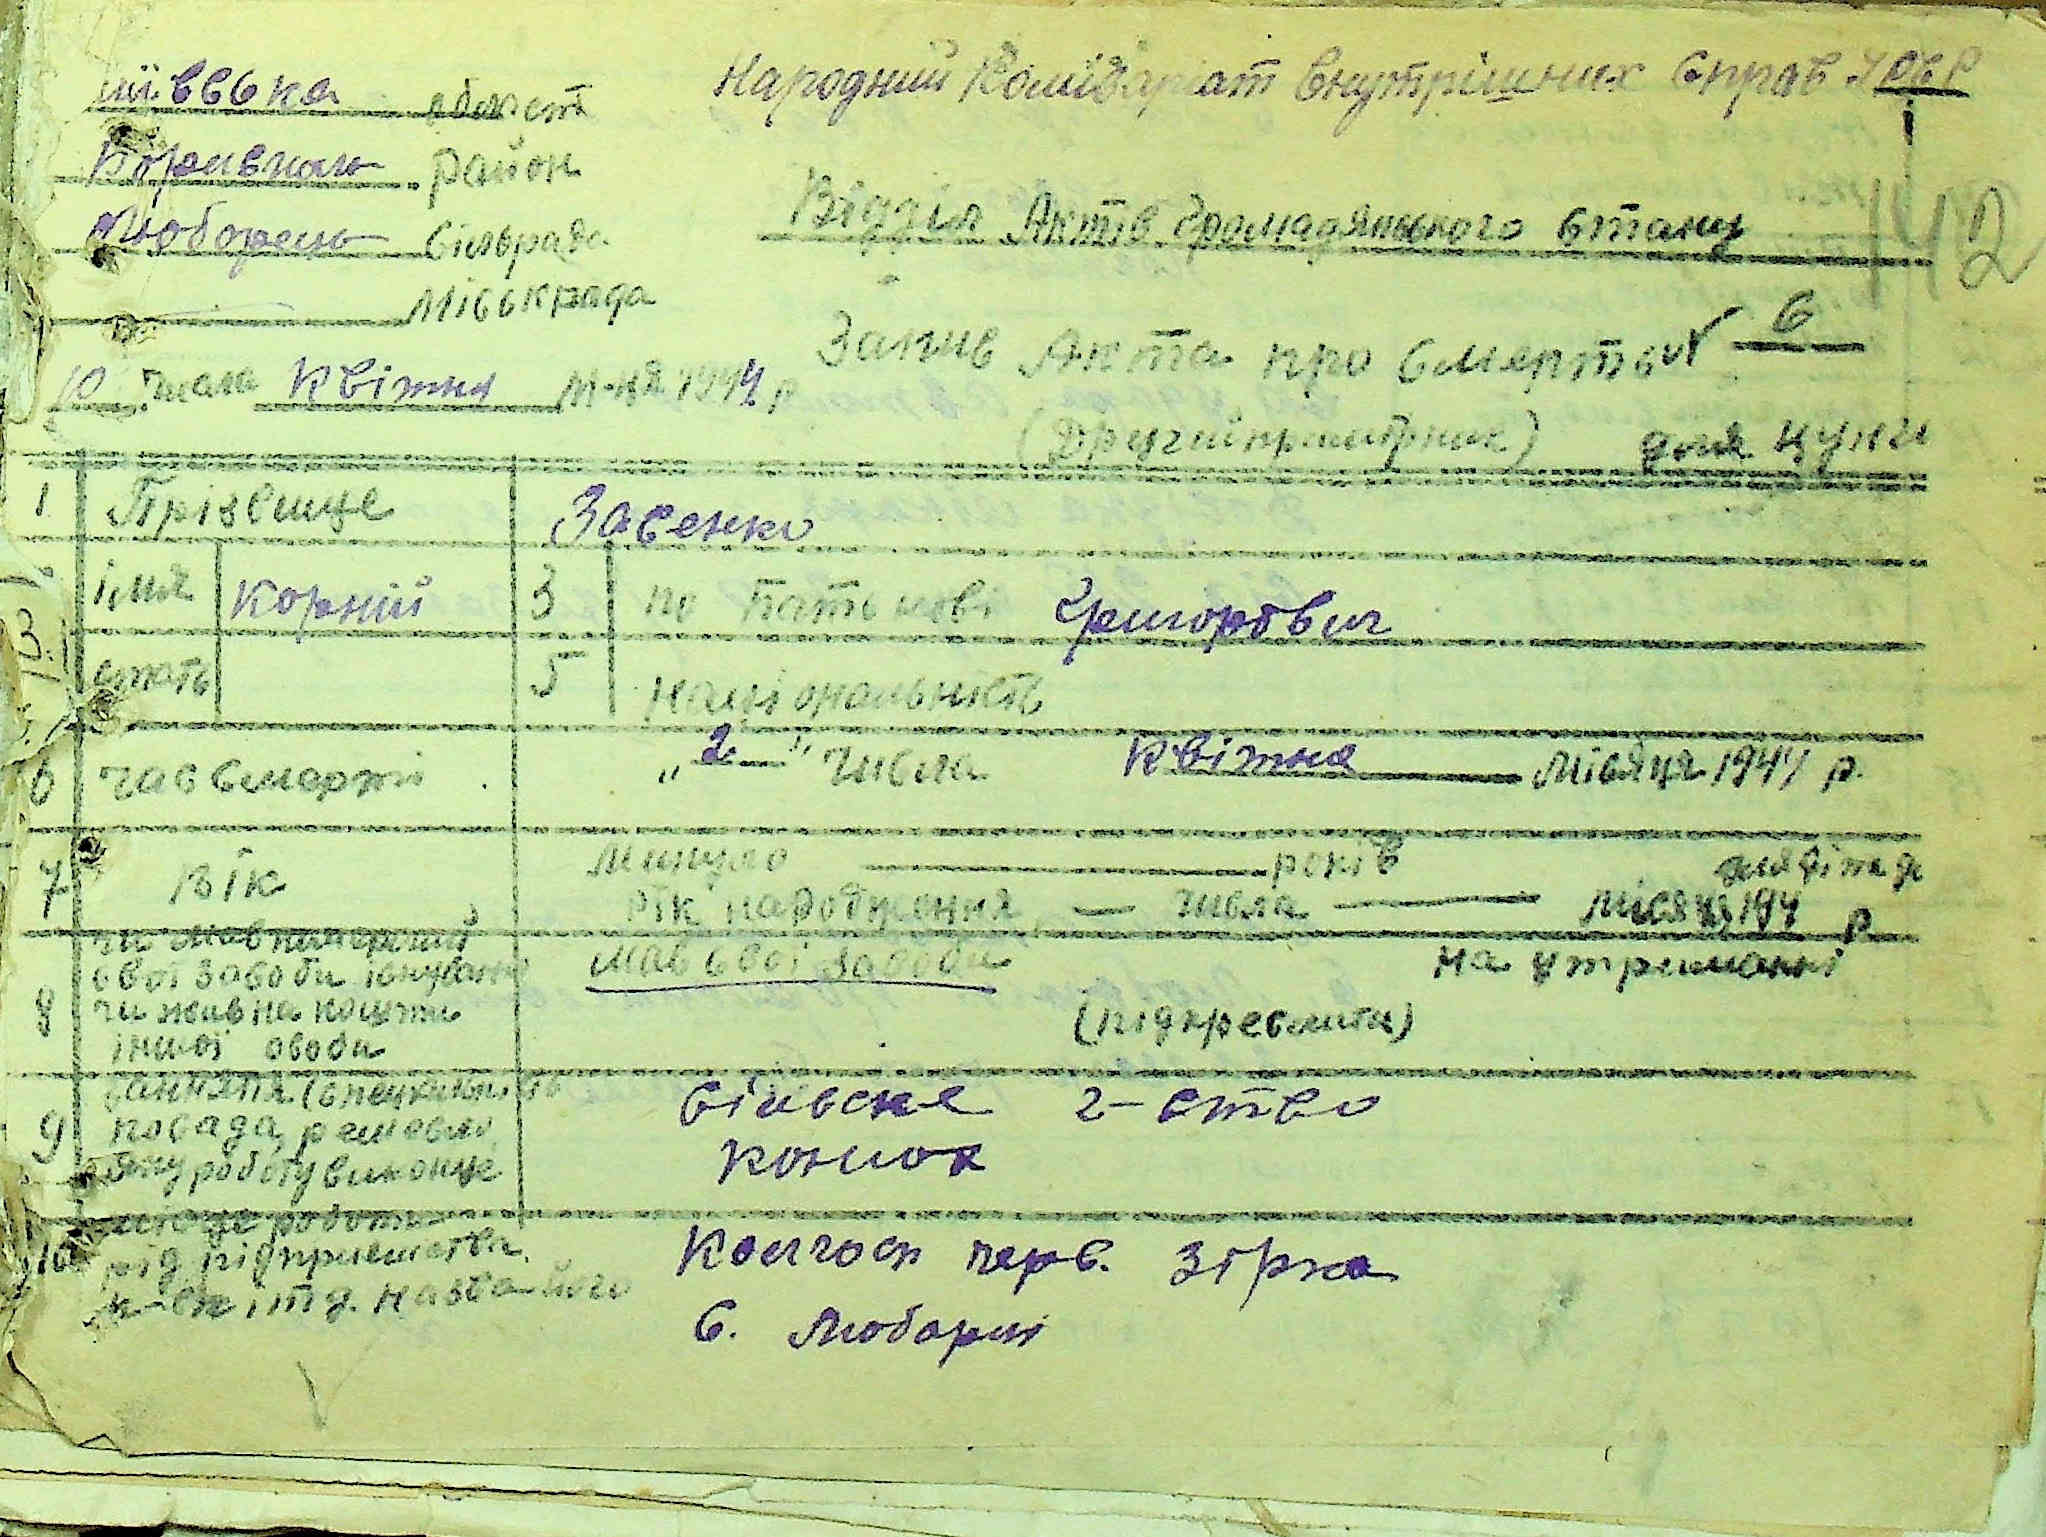 область
Народний Комісаріат Внутрішних Справ УРСР
район
142
сільрада
Відділ Актів Громадянського Стану
міськрада
Запис Акта про смерть № 6
10 числа квітня м-ця 1944 р
(Другий примірник) для ЦУНГО
1 Прізвище Заєенко
імя Корній 3 по батькові Григорович
стать 5 національність
6 час смерті "2" числа квітня місяця 1944 р.
7 вік минуло років для дітей до
рік народження числа місяця 194 р
8 чи мав померший свої засоби існування чи жив на кошти іншої особи
мав свої засоби на утриманні
(підкреслити)
9 заняття (спеціальність посада, ремесло) яку роботу виконує
сільське г-ство
конюх
10 місце роботи рід підприємства к-сп і т д. назва його
Колгосп черв. зірка
с. Люборці